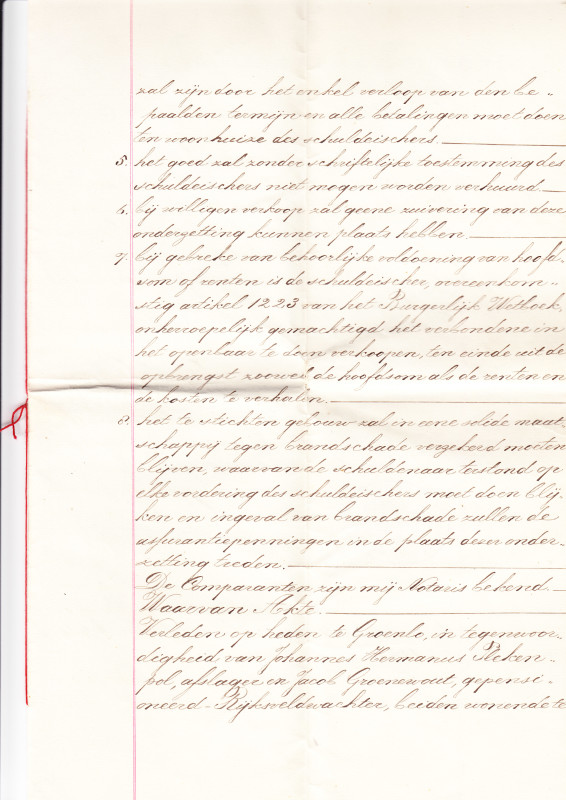 zal zijn door het enkel verloop van den be„
paalden termijn en alle betalingen moet doen
ten woonhuize des schuldeischers.
5. het goed zal zonder schriftelijke toestemming des
schuldeischers niet mogen worden verhuurd
6. bij willigen verkoop zal geene zuivering van deze
onderzetting kunnen plaats hebben.
7. bij gebreke van behoorlijke voldoening van hoofd„
som of renten is de schuldeischer, overeenkom„
stig artikel 1223 van het Burgerlijk Wetboek,
onherroepelijk gemachtigd het verbondene in
het openbaar te doen verkoopen, ten einde uit de
opbrengst zoowel de hoofdsom als de renten en
de kosten te verhalen.
8. het te stichten gebouw zal in eene solide maat„
schappij tegen brandschade verzekerd moeten
blijven, waarvan de schuldenaar terstond op
elke vordering des schuldeischers moet doen blij„
ken en ingeval van brandschade zullen de
assurantiepenningen in de plaats dezer onder„
zetting treden.
De Comparanten zijn mij Notaris bekend
Waarvan Akte.
Verleden op heden te Groenlo, in tegenwoor„
digheid van Johannes Hermanus
pol, afslager en Jacob Groenewout, gepensi„
oneerd Rijksveldwachter, beiden wonende te